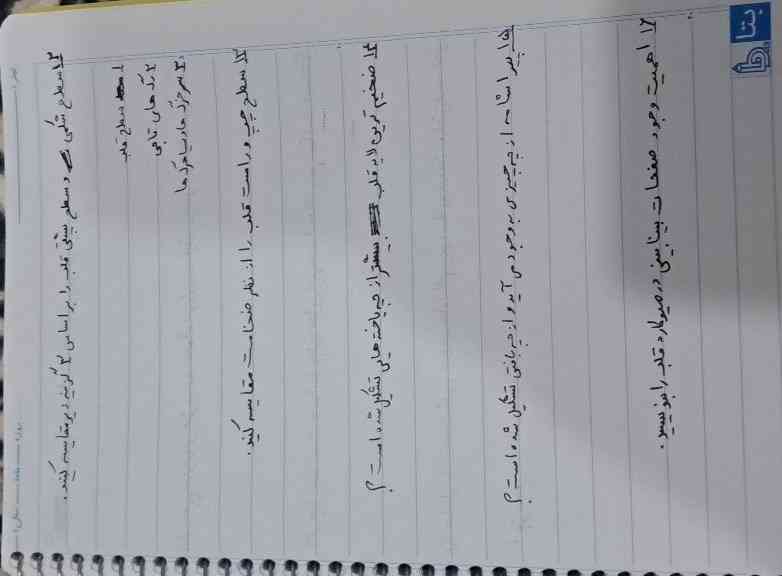 ۱۲ سطح شکمی و سطح پشتی قلب را بر اساس ۳ گزینه زیر مقایسه کنید.
۱ سطح قلب
۲ رگ های تاجی
۳ سرخرگ ها و سیاهرگ ها
۱۳ سطح چپ و راست قلب را از نظر ضخامت مقایسه کنید.
۱۴ ضخیم ترین لایه قلب بیشتر از چه یاخته هایی تشکیل شده است؟
۱۵ پیراشامه از چه چیزی به وجود می آید و از چه بافتی تشکیل شده است؟
۱۶ اهمیت وجود صفحات بینابینی در میوکارد قلب را بنویسید.
بتا